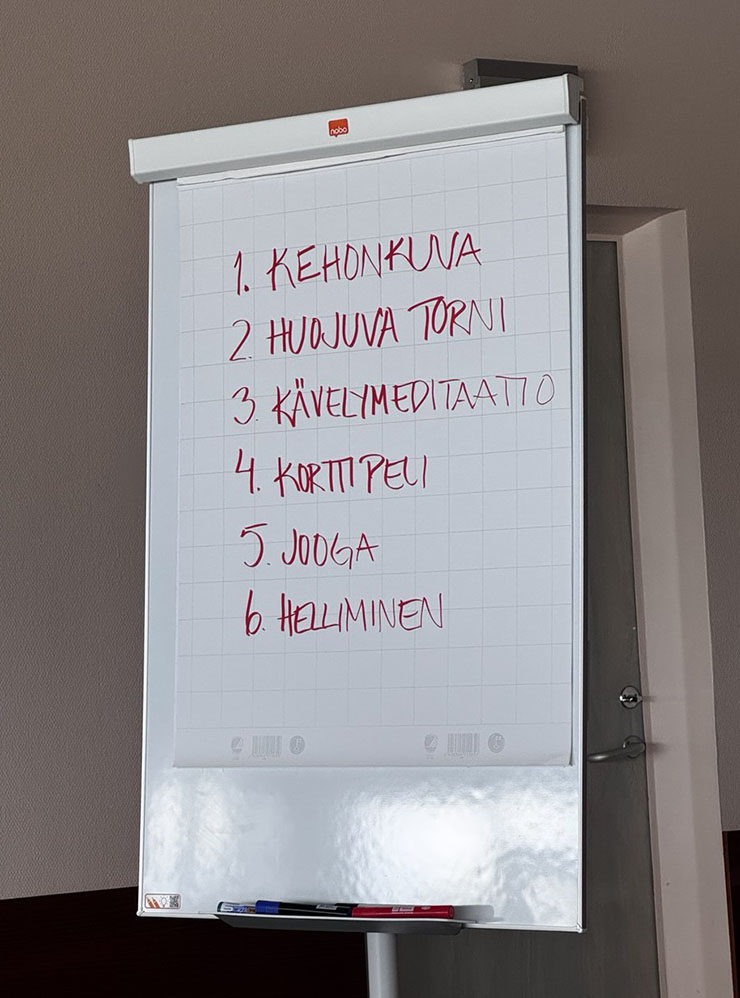 nobo
1. KEHONKUVA
2. HUOJUVA TORNI
3. KÄVELYMEDITAATIO
4. KORTTIPELI
5. JOOGA
6. HELLIMINEN